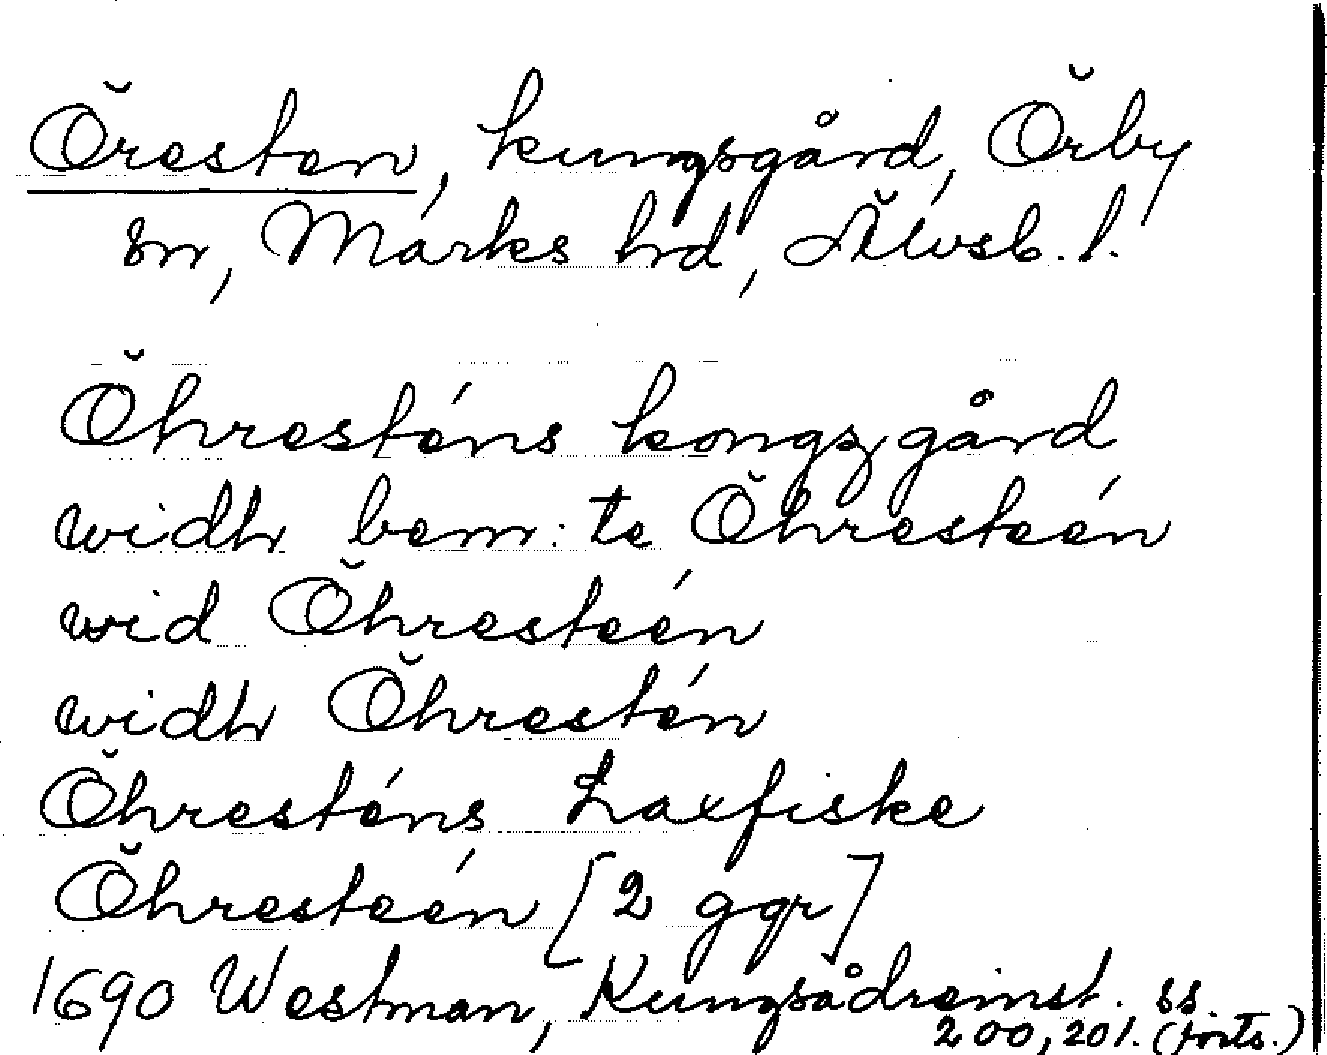 Öresten, kungsgård, Örby
sn, Marks hd, Älvsb. l.
Öhresténs kongzgård
widh bem: te Öhresteén
wid Öhresteén
widh Öhrestén
Öhresténs Laxfiske
Öhresteén [2 ggr]
1690 Westman, Kungsådreinst. ss.
200, 201. (forts.)